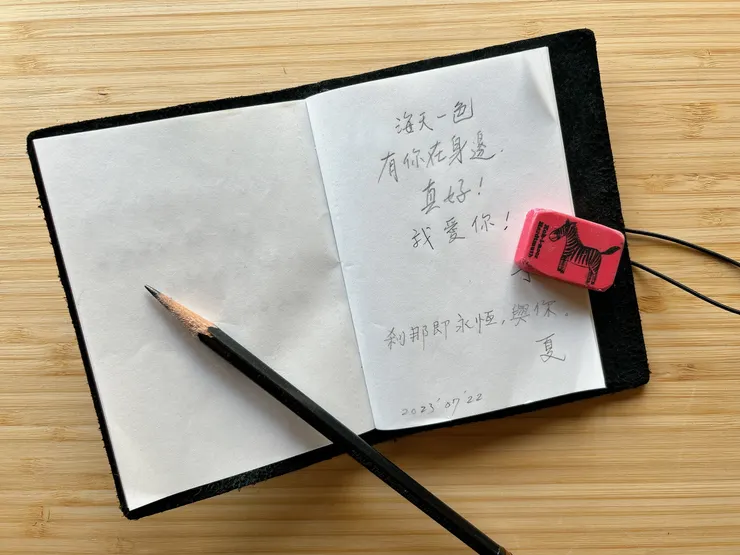 海天一色
有你在身邊.
真好！
我愛你！
剎那即永恆,與你。
夏
2023'07'22